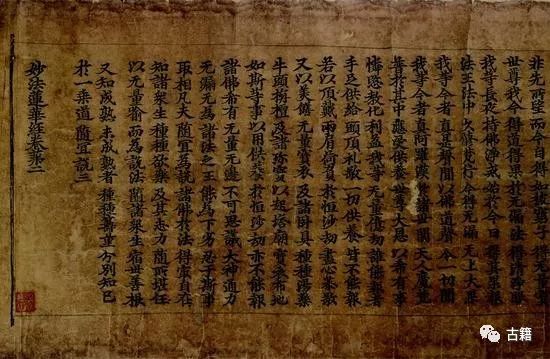 非先所望 而今自得 如彼窮子 得无量寶
世尊我今 得道得果 於无漏法 得清淨眼
我等長夜 持佛淨戒 始於今日 得其果報
法王法中 久修梵行 今得无漏 无上大果
我等今者 真是聲聞 以佛道聲 令一切聞
我等今者 真阿羅漢 於諸世間 天人魔梵
普於其中 應受供養 世尊大恩 以希有事
憐愍教化 利益我等 无量億劫 誰能報者
手足供給 頭頂礼敬 一切供養 皆不能報
若以頂戴 兩肩荷負 於恒沙劫 盡心恭敬
又以美饍 无量寶衣 及諸卧具 種種湯藥
牛頭栴檀 及諸珎寶 以起塔廟 寶衣布地
如斯等事 以用供養 於恒沙劫 亦不能報
諸佛希有 无量无邊 不可思議 大神通力
无漏无為 諸法之王 能為下劣 忍于斯事
取相凡夫 隨宜為說 諸佛於法 得㝡自在
知諸眾生 種種欲樂 及其志力 隨所堪任
以无量喻 而為說法 隨諸眾生 宿世善根
又知成熟 未成熟者 種種籌量 分別知已
於一乘道 隨宜說三
妙法蓮華經卷第二
古籍